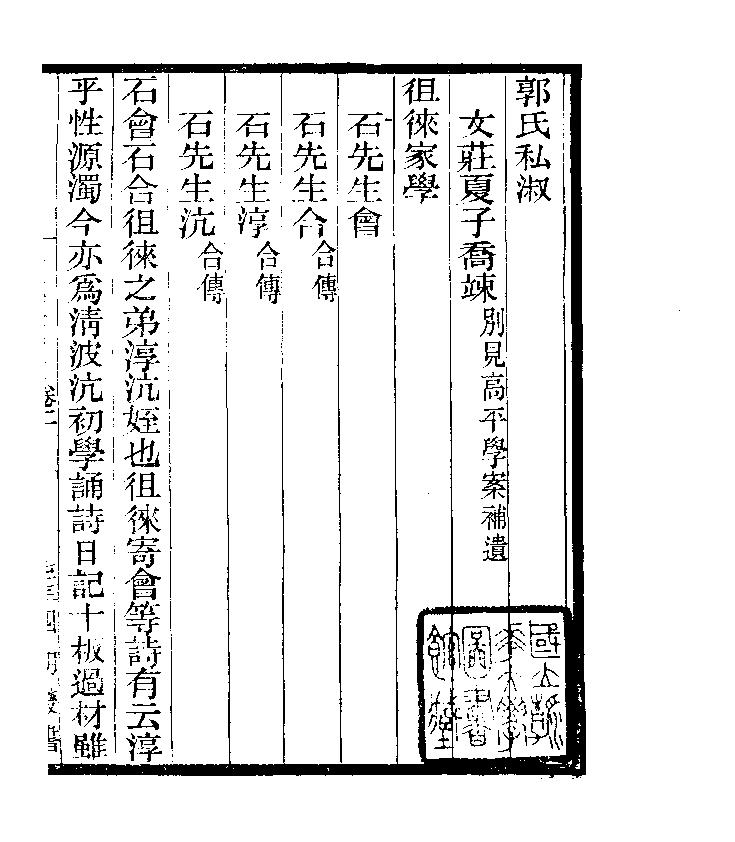 郭氏私淑
文莊夏子喬竦別見高平學案補遺
徂徠家學
石先生會
石先生合合傳
石先生淳合傳
石先生沆合傳
石會石合徂徠之弟淳沆姪也徂徠寄會等詩有云淳
乎性源濁今亦爲清波沆初學誦詩日記十板過材雖
卷二
四明叢書
國立
圖書